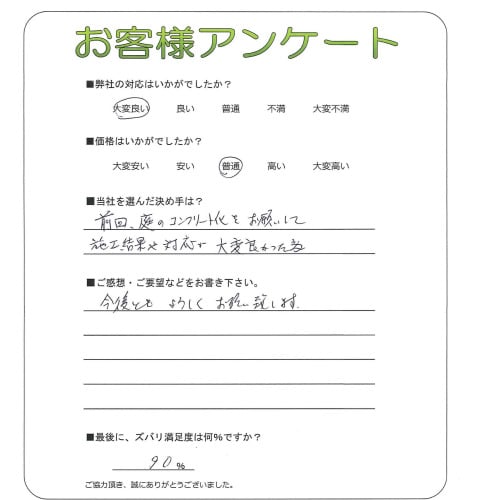 お客様アンケート
■弊社の対応はいかがでしたか？
大変良い 良い 普通 不満 大変不満
■価格はいかがでしたか？
大変安い 安い 普通 高い 大変高い
■当社を選んだ決め手は？
前回、庭のコンクリート化をお願いして
施工結果や対応が大変良かった為
■ご感想・ご要望などをお書き下さい。
今後とも よろしく お願い致します。
■最後に、ズバリ満足度は何％ですか？
90％
ご協力頂き、誠にありがとうございました。